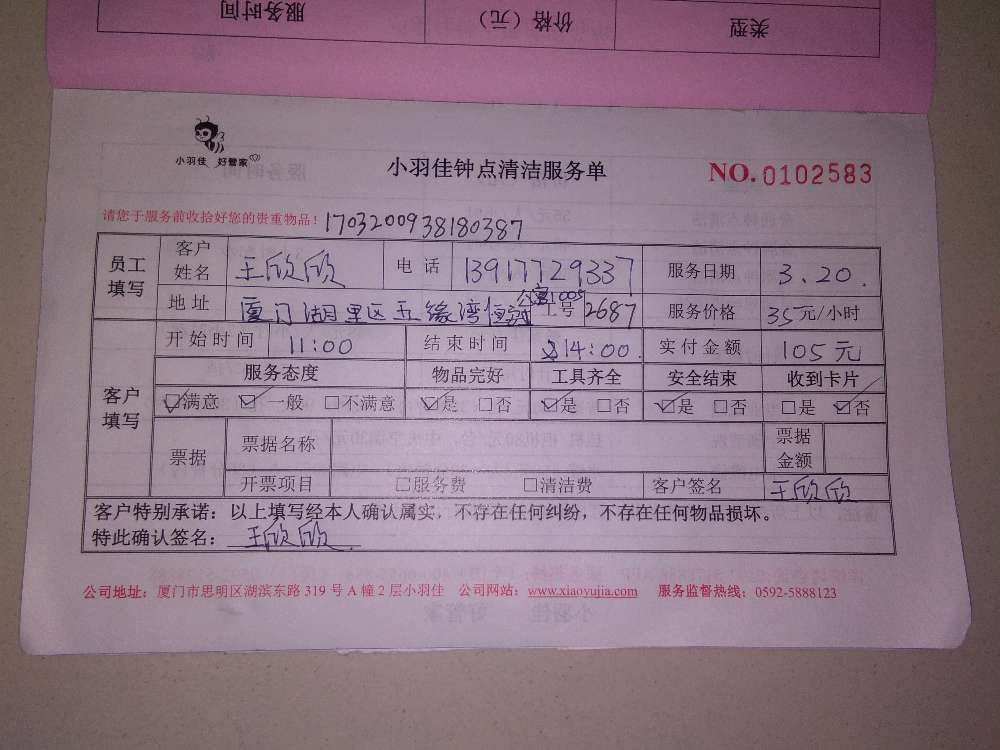 服务时间 价格（元） 类型
小羽佳 好管家
小羽佳钟点清洁服务单
NO.0102583
请您于服务前收拾好您的贵重物品！ 1703200938180387
员工填写 客户姓名 王欣欣 电话 13917729337 服务日期 3.20.
地址 厦门湖里区五缘湾恒 公寓1005 工号 2687 服务价格 35元/小时
客户填写 开始时间 11:00 结束时间 14:00 实付金额 105元
服务态度 物品完好 工具齐全 安全结束 收到卡片
☑满意 ☑一般 □不满意 ☑是 □否 ☑是 □否 ☑是 □否 □是 ☑否
票据 票据名称 票据金额
开票项目 □服务费 □清洁费 客户签名 王欣欣
客户特别承诺：以上填写经本人确认属实，不存在任何纠纷，不存在任何物品损坏。
特此确认签名： 王欣欣
公司地址：厦门市思明区湖滨东路 319 号 A 幢 2 层小羽佳 公司网站：www.xiaoyujia.com 服务监督热线：0592-5888123